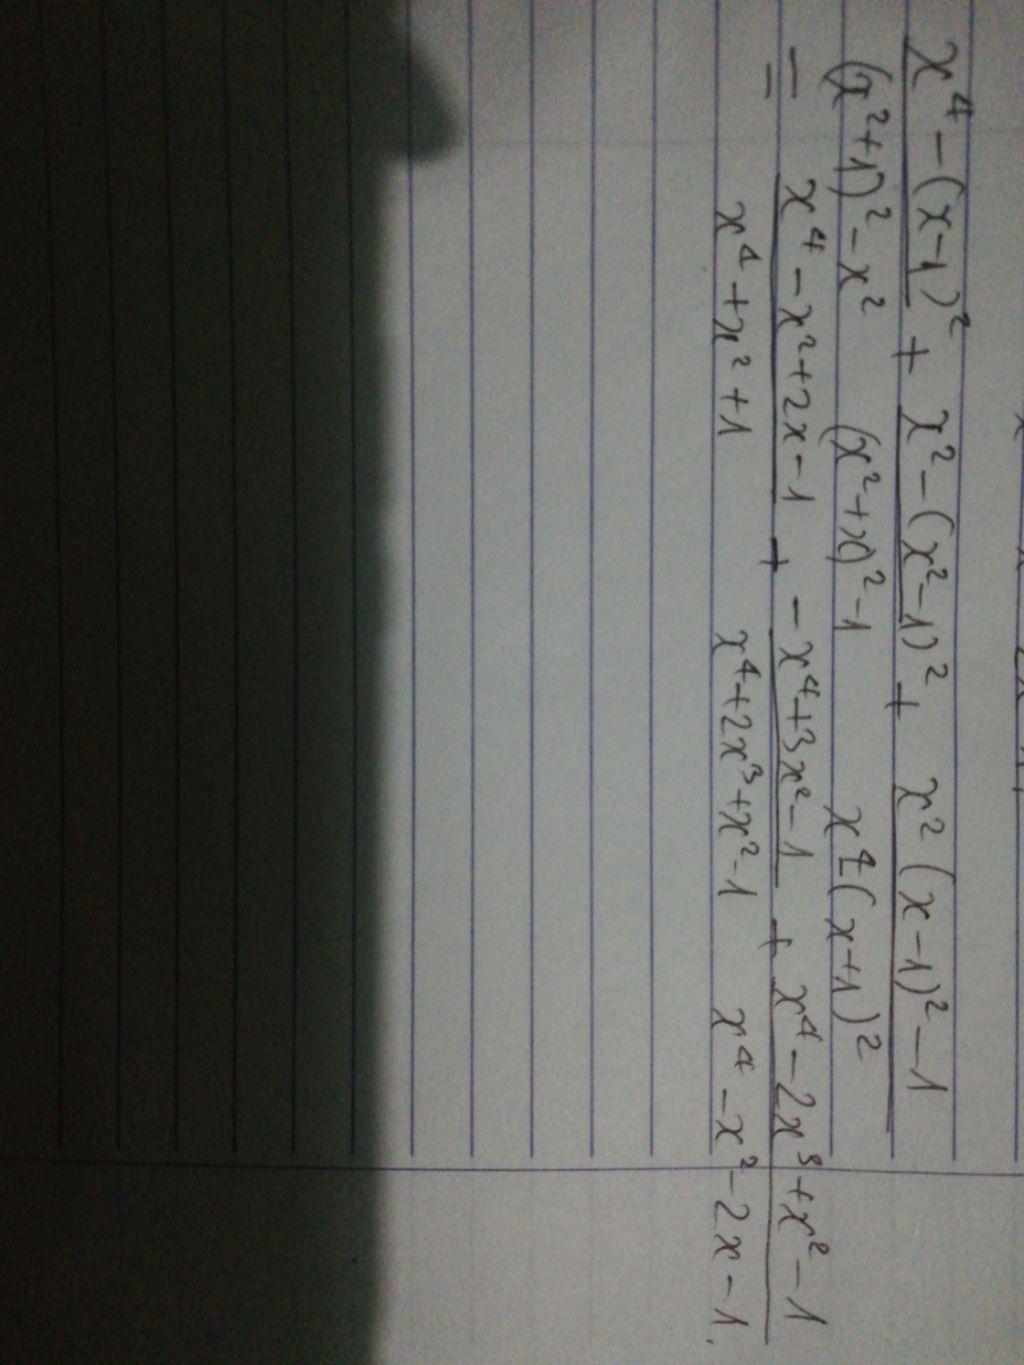 x⁴-(x-1)² + x²-(x²-1)² + x²(x-1)²-1
(x²+1)²-x² (x²+x)²-1 x⁴-(x+1)²
= x⁴-x²+2x-1 + -x⁴+3x²-1 + x⁴-2x³+x²-1
x⁴+x²+1 x⁴+2x³+x²-1 x⁴-x²-2x-1.